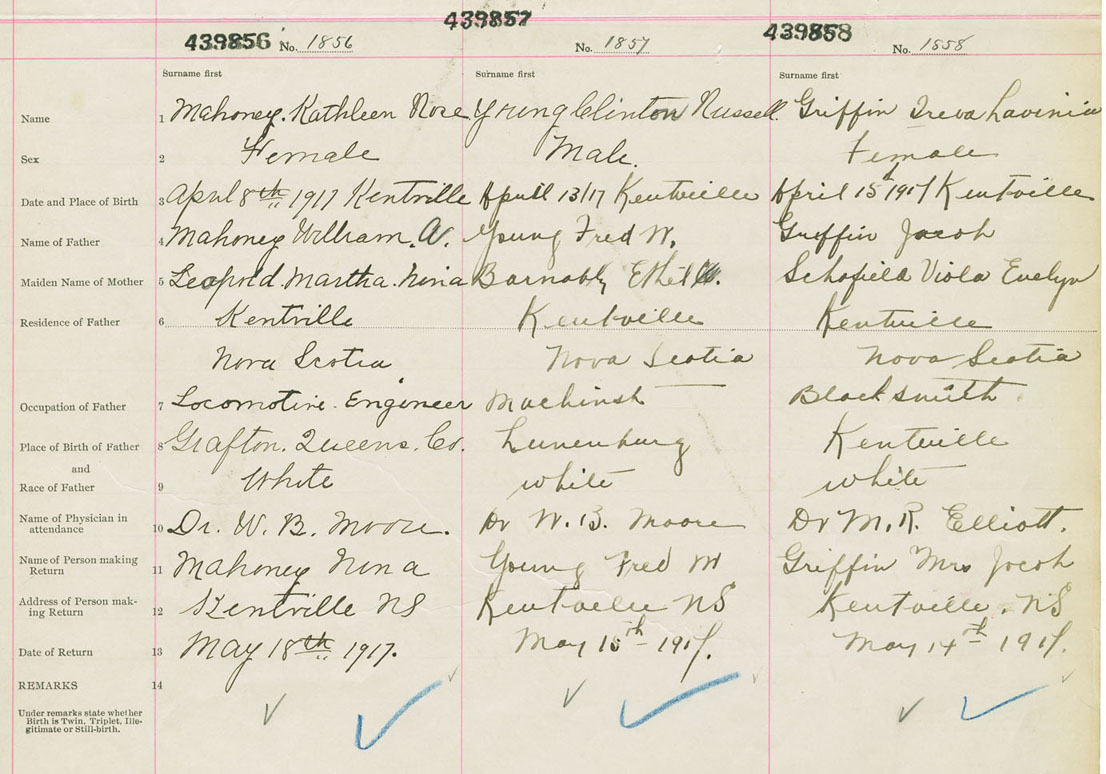 439856 No. 1856 439857 No. 1857 439858 No. 1858
Surname first Surname first Surname first
Name 1 Mahoney. Kathleen Rose Young Clinton Russell. Griffin Treva Lavinia
Sex 2 Female Male. Female
Date and Place of Birth 3 April 8th 1917 Kentville April 13/17 Kentville April 15 1917 Kentville
Name of Father 4 Mahoney William. A. Young Fred W. Griffin Jacob
Maiden Name of Mother 5 Leopold. Martha. Nina Barnaby Ethel Schofield Viola Evelyn
Residence of Father 6 Kentville Kentville Kentville
Nova Scotia Nova Scotia Nova Scotia
Occupation of Father 7 Locomotive. Engineer Machinist Blacksmith
Place of Birth of Father 8 Grafton. Queens. Co. Lunenburg Kentville
and
Race of Father 9 White white white
Name of Physician in
attendance 10 Dr. W. B. Moore. Dr W. B. Moore Dr M. R. Elliott.
Name of Person making
Return 11 Mahoney Nina Young Fred W Griffin Mrs Jacob
Address of Person mak-
ing Return 12 Kentville NS Kentville NS Kentville. NS
Date of Return 13 May 18th 1917. May 15th 1917. May 14th 1917.
REMARKS 14
Under remarks state whether
Birth is Twin, Triplet, Ille-
gitimate or Still-birth.